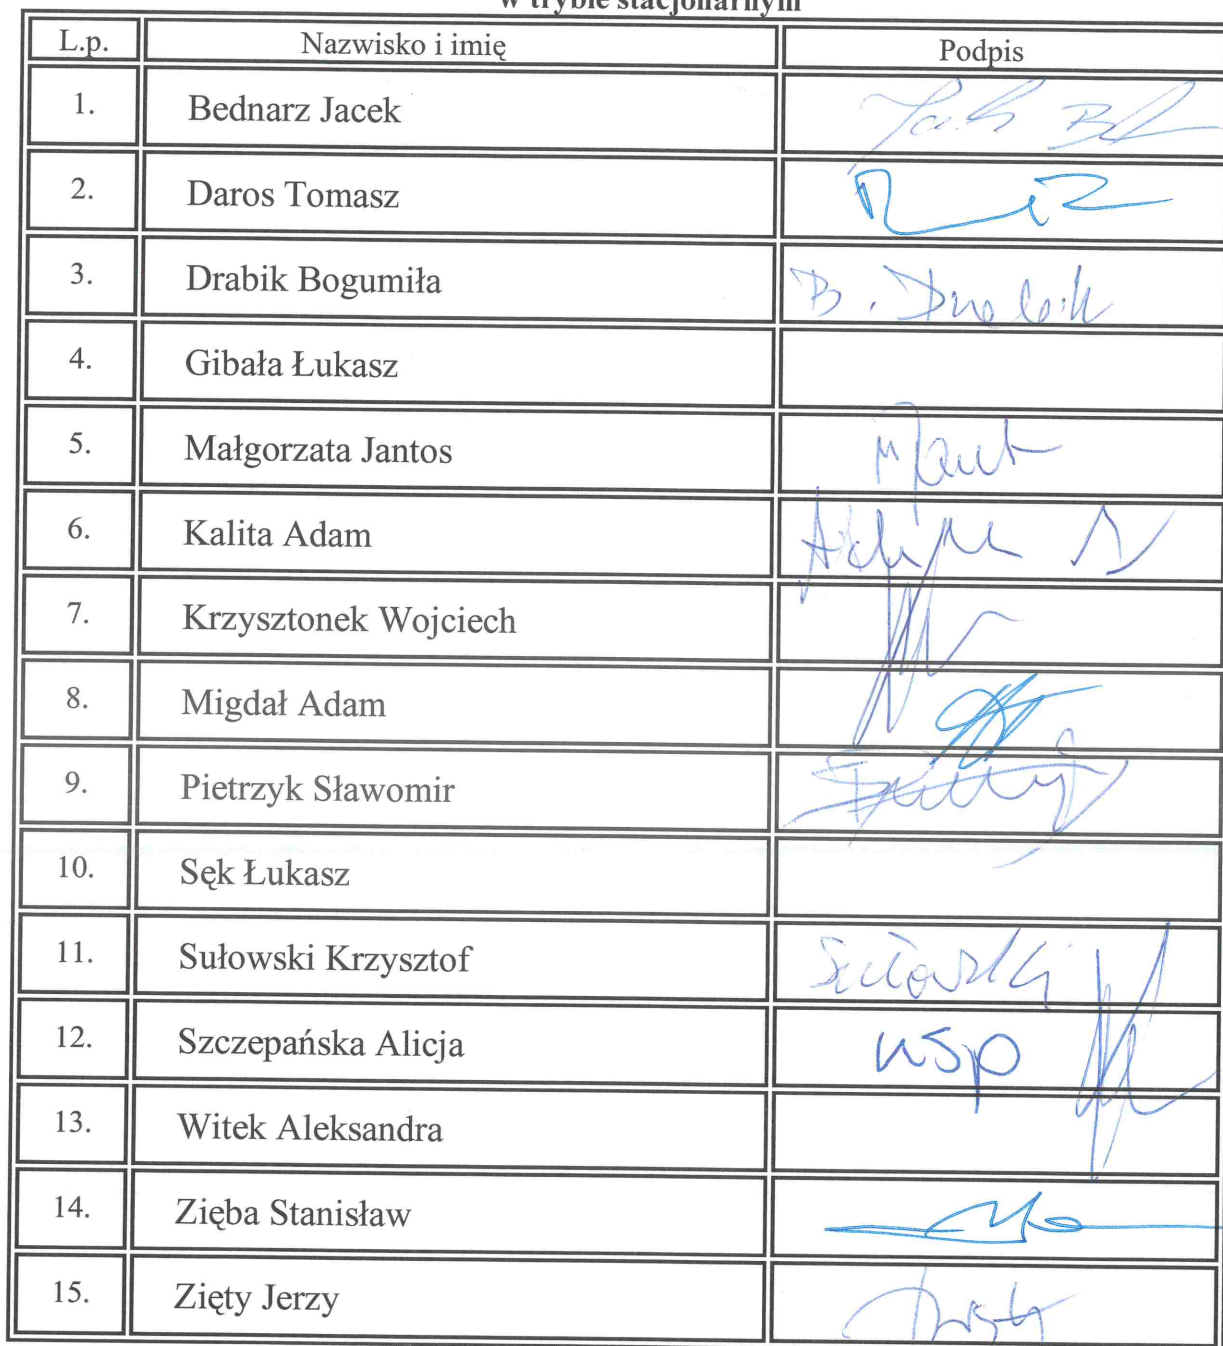 w trybie stacjonarnym
L.p. Nazwisko i imię Podpis
1. Bednarz Jacek
2. Daros Tomasz
3. Drabik Bogumiła B. Drabik
4. Gibała Łukasz
5. Małgorzata Jantos
6. Kalita Adam
7. Krzysztonek Wojciech
8. Migdał Adam
9. Pietrzyk Sławomir
10. Sęk Łukasz
11. Sułowski Krzysztof Sułowski
12. Szczepańska Alicja
13. Witek Aleksandra
14. Zięba Stanisław
15. Zięty Jerzy